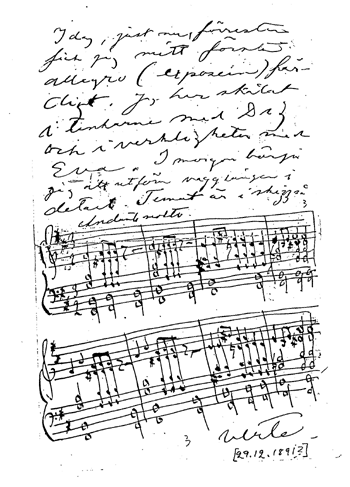 Idag, just nu, förresten
fick jag mitt första
allegro (exposein) fär-
digt. Jag har skålat
i tankarne med Dig
och i verkligheten med
Eva. I morgon börja
jag att utföra vaggsången i
detalj. Temat är i skizze
Andante molto
3
3
[29.12.1891?]